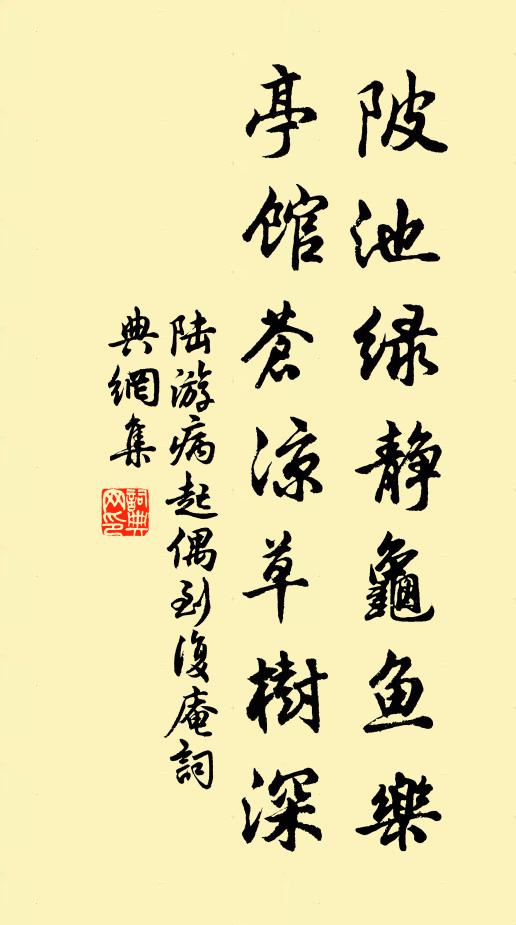 陂池绿静龜鱼樂
亭館苍凉草樹深
陆游病起偶到復庵詞
典網集
詞典网印